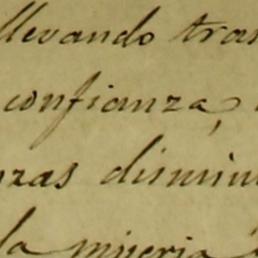 llevando tras
confianza,
zas dismin
la miseria